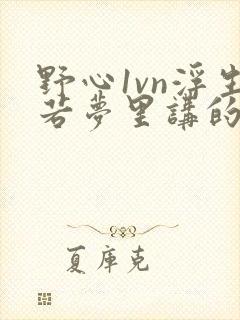 野心1vn浮生
若夢里講的
夏庫克